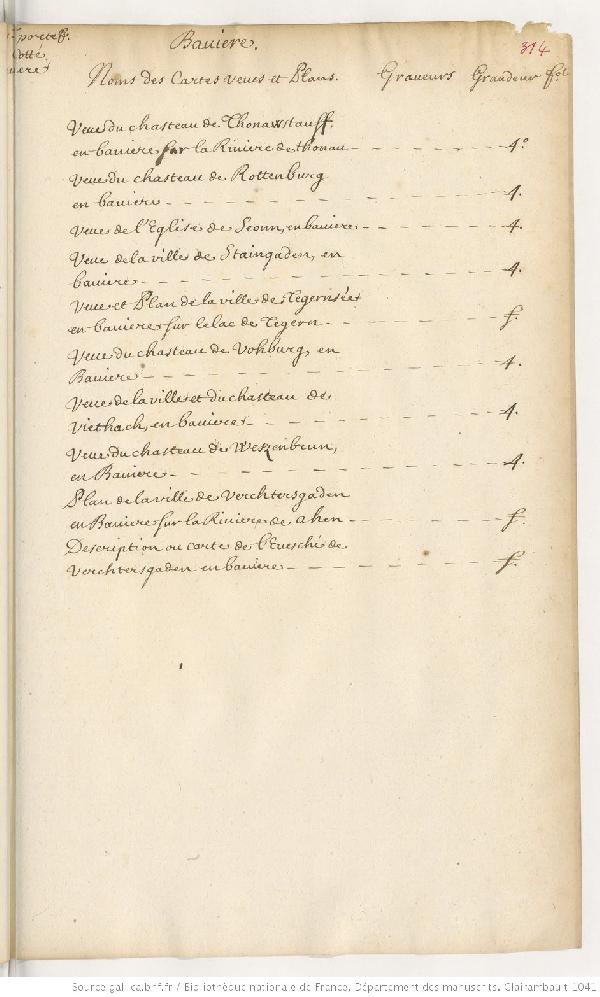 Baviere.
314
Cotté
Noms des Cartes veues et Plans. Graveurs Grandeur fol
Veue du chasteau de Thonawstauff.
en baviere sur la Riviere de thonau - 4.º
Veue du chasteau de Rottenburg
en baviere - 4.
Veue de l'Eglise de Seonn, en baviere - 4.
Veue de la ville de Staingaden, en
baviere - 4.
Veue et Plan de la ville de Tegernsée
en baviere sur le lac de Tegern - f.
Veue du chasteau de Vohburg, en
Baviere - 4.
Veue de la ville et du chasteau de
Viethach, en baviere - 4.
Veue du chasteau de Weszenbrun,
en Baviere - 4.
Plan de la ville de Verchtersgaden
en Baviere sur la Riviere de ahen - f.
Description ou carte de l'Evesché de
Verchtersgaden en baviere - f.
Source gallica.bnf.fr / Bibliothèque nationale de France. Département des manuscrits. Clairambault 1041